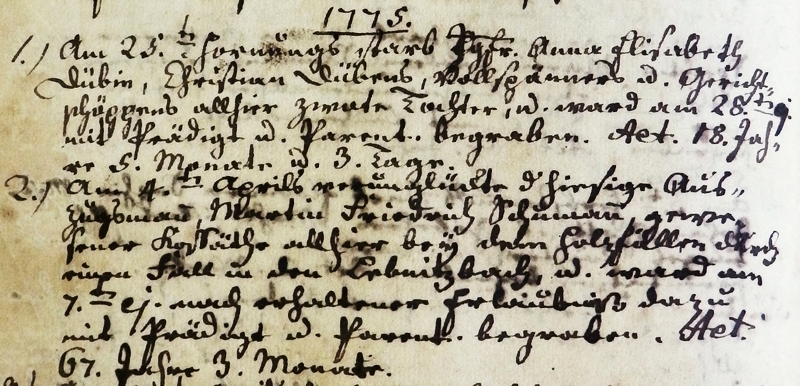 1775.
1.) Am 25. t. Hornungs starb Jgfr. Anna Elisabeth
Dübin, Christian Dübens, Vollspänners u. Gericht-
schöppens allhier zwote Tochter, u. ward am 28. t. ej.
mit Prädigt u. Parent. begraben. Aet. 18. Jah-
re 5. Monate u. 3. Tage.
2.) Am 4. t. Aprils verunglückte d hiesige Aus-
zugsmañ, Martin Friedrich Schumañ, gewe-
sener Kossäthe allhier bey dem Holzfällen durch
einen Fall in den Lebnitzbach, u. ward am
7. t. ej. nach erhaltener Erlaubniß dazu
mit Prädigt u. Parent. begraben. Aet.
67. Jahre 3. Monate.